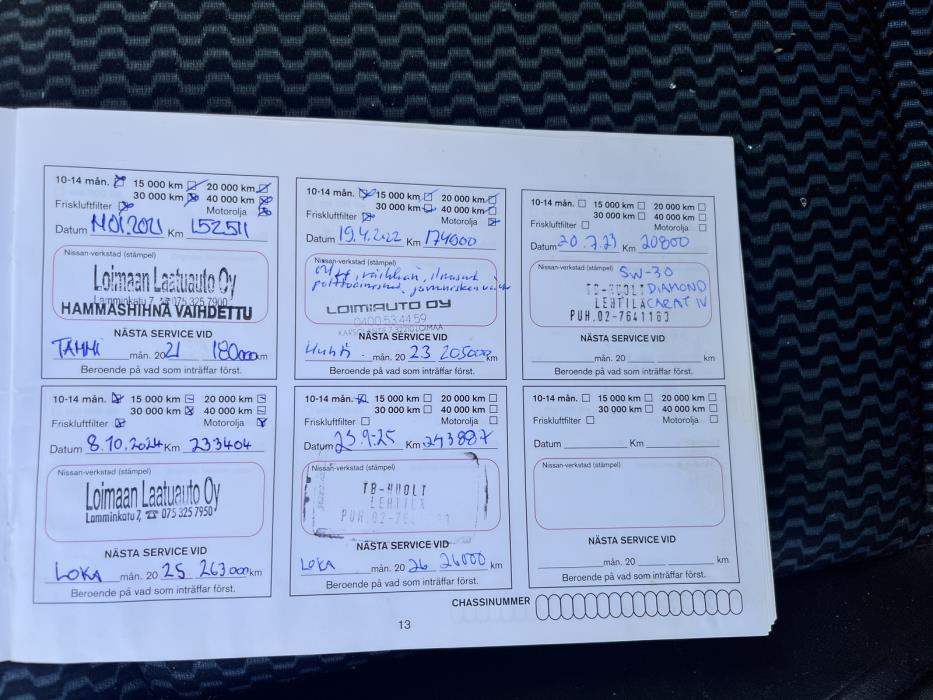 10-14 mån. 15 000 km 20 000 km
30 000 km 40 000 km
Friskluftfilter Motorolja
Datum Km 152511
Nissan-verkstad (stämpel)
Loimaan Laatuauto Oy
Lamminkatu 7, ☎ 075 325 7900
HAMMASHIHNA VAIHDETTU
NÄSTA SERVICE VID
TAMMI mån. 20 21 180000 km
Beroende på vad som inträffar först.
10-14 mån. 15 000 km 20 000 km
30 000 km 40 000 km
Friskluftfilter Motorolja
Datum 19.4.2022 Km 174000
Nissan-verkstad (stämpel)
LOIMIAUTO OY
0400 53 44 59
NÄSTA SERVICE VID
Huhti mån. 20 23 205000 km
Beroende på vad som inträffar först.
10-14 mån. 15 000 km 20 000 km
30 000 km 40 000 km
Friskluftfilter Motorolja
Datum 20.7.23 Km 20800
Nissan-verkstad (stämpel)
5W-30
TB-HUOLT DIAMOND
LEHTILA CARAT IV
PUH.02-7641163
NÄSTA SERVICE VID
mån. 20 km
Beroende på vad som inträffar först.
10-14 mån. 15 000 km 20 000 km
30 000 km 40 000 km
Friskluftfilter Motorolja
Datum 8.10.2024 Km 233404
Nissan-verkstad (stämpel)
Loimaan Laatuauto Oy
Lamminkatu 7, ☎ 075 325 7950
NÄSTA SERVICE VID
LOKA mån. 20 25 263000 km
Beroende på vad som inträffar först.
10-14 mån. 15 000 km 20 000 km
30 000 km 40 000 km
Friskluftfilter Motorolja
Datum 23.9-25 Km 243887
Nissan-verkstad (stämpel)
TB-HUOLT
LEHTILA
PUH.02-76
NÄSTA SERVICE VID
LOKA mån. 20 26 26000 km
Beroende på vad som inträffar först.
10-14 mån. 15 000 km 20 000 km
30 000 km 40 000 km
Friskluftfilter Motorolja
Datum Km
Nissan-verkstad (stämpel)
NÄSTA SERVICE VID
mån. 20 km
Beroende på vad som inträffar först.
CHASSINUMMER
13